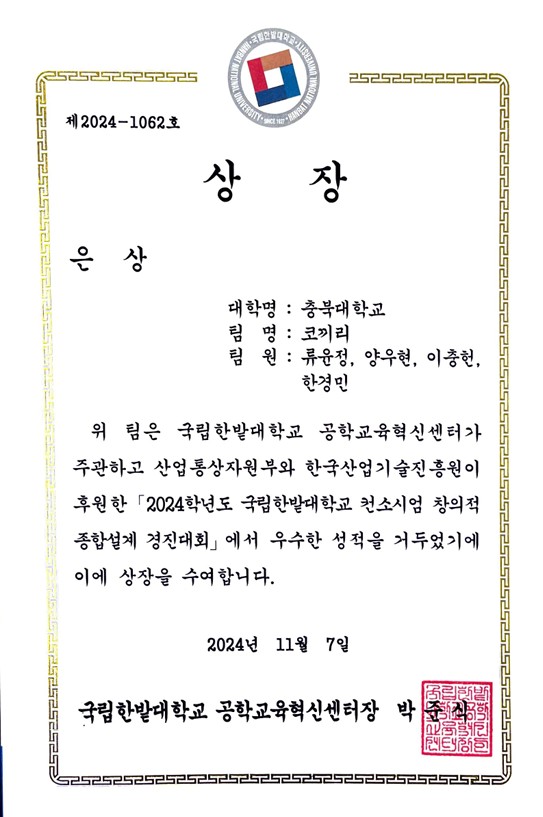 국립한밭대학교
HANBAT NATIONAL UNIVERSITY
SINCE 1927
제2024-1062호
상 장
은 상
대학명 : 충북대학교
팀 명 : 코끼리
팀 원 : 류윤정, 양우현, 이충헌,
한경민
위 팀은 국립한밭대학교 공학교육혁신센터가
주관하고 산업통상자원부와 한국산업기술진흥원이
후원한 「2024학년도 국립한밭대학교 컨소시엄 창의적
종합설계 경진대회」에서 우수한 성적을 거두었기에
이에 상장을 수여합니다.
2024년 11월 7일
국립한밭대학교 공학교육혁신센터장 박 준 식